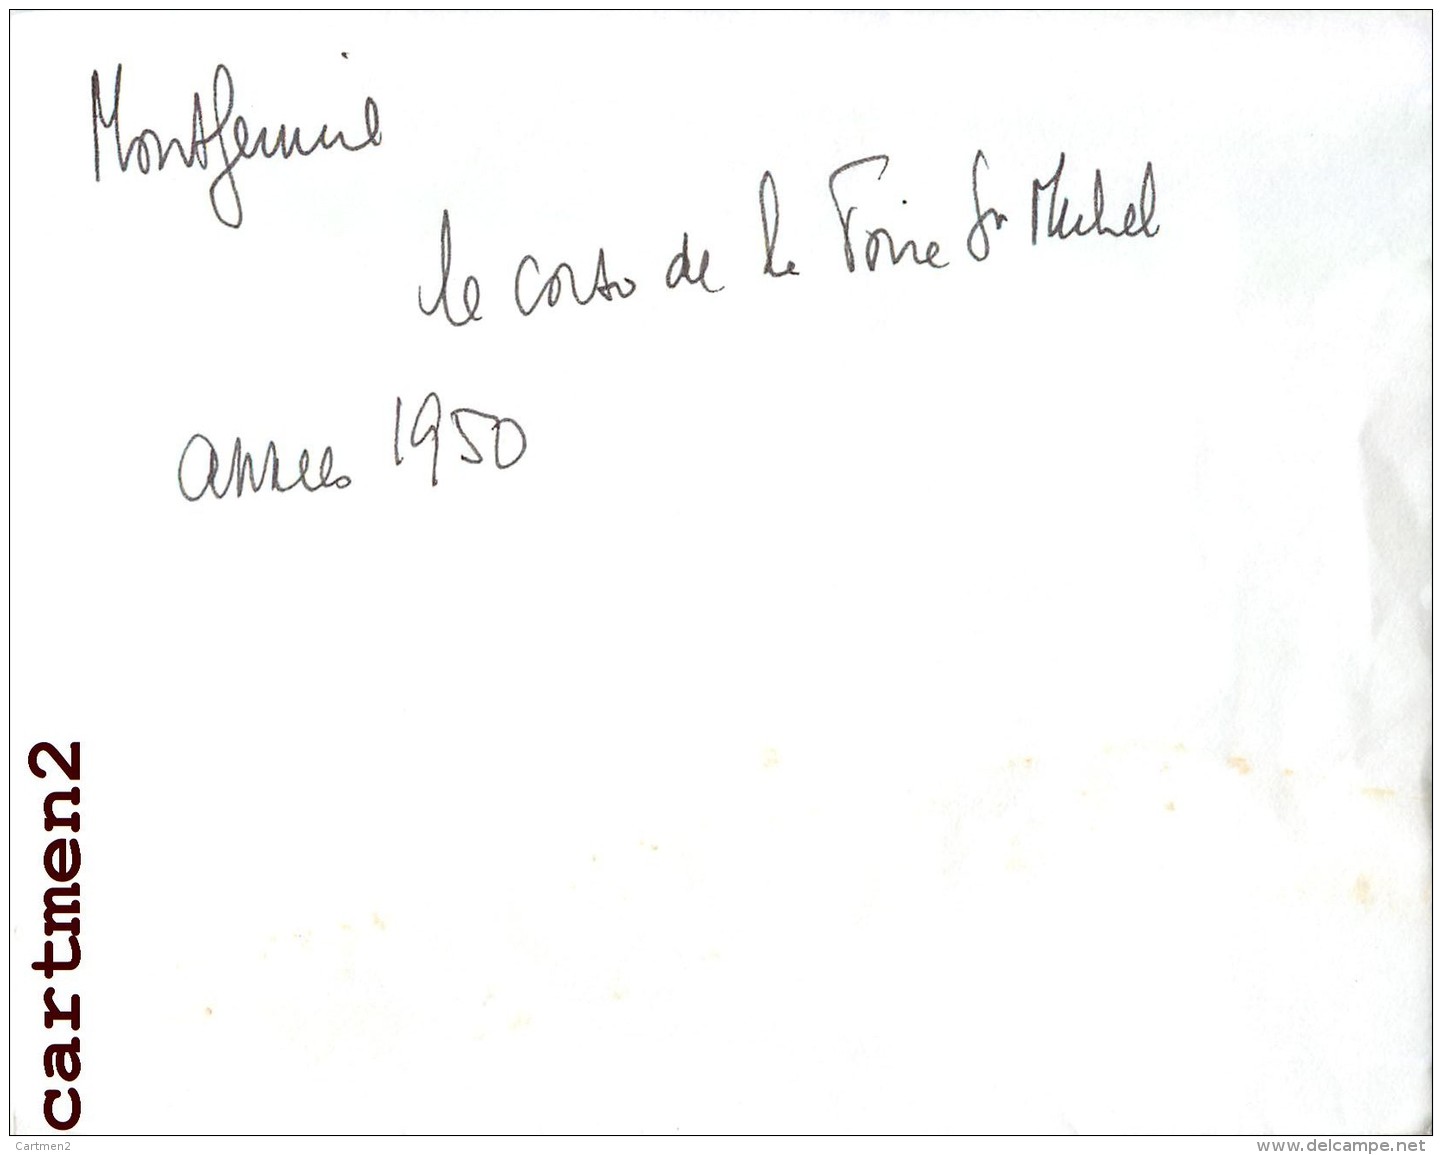 Montfermeil
le corso de la Foire St Michel
années 1950
cartmen2
Cartmen2
www.delcampe.net